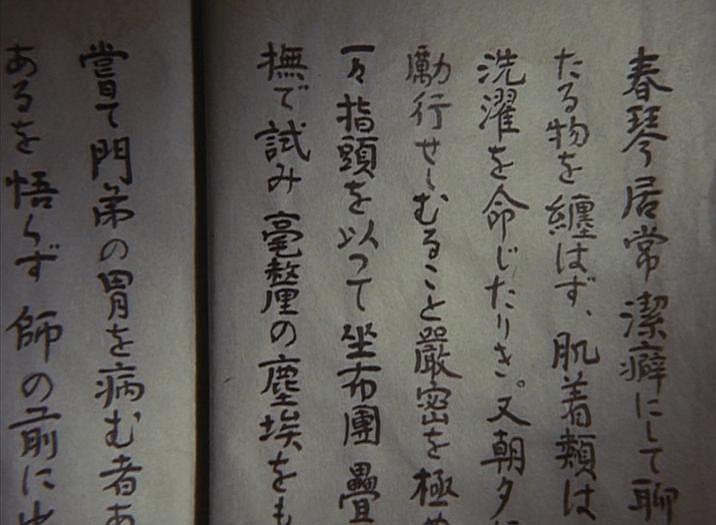 春琴居常潔癖にして聊
たる物を纏はず、肌着類は
洗濯を命じたりき。又朝夕
励行せしむること厳密を極め
一々指頭を以つて坐布團疊
撫で試み毫釐の塵埃をも
嘗て門弟の胃を病む者あ
あるを悟らず師の前に出